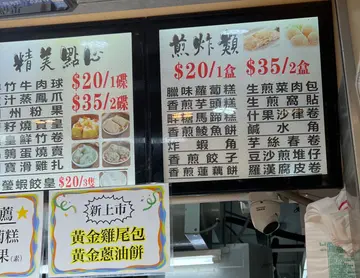 精美點心
$20/1碟
$35/2碟
竹牛肉球
汁蒸鳳爪
州粉果
籽燒賣
鮮竹卷
蛋燒賣
寶滑雞扎
蟹蝦餃皇 $20/3隻
煎炸類
$20/1盒
$35/2盒
臘味蘿蔔糕
香煎芋頭糕
馬蹄糕
香煎鯪魚餅
炸蝦角
香煎餃子
香煎蓮藕餅
生煎菜肉包
生煎窩貼
什果沙律卷
鹹水角
芋絲春卷
豆沙煎堆仔
羅漢腐皮卷
薦
糕
果(素)
新上市
黃金雞尾包
黃金蔥油餅